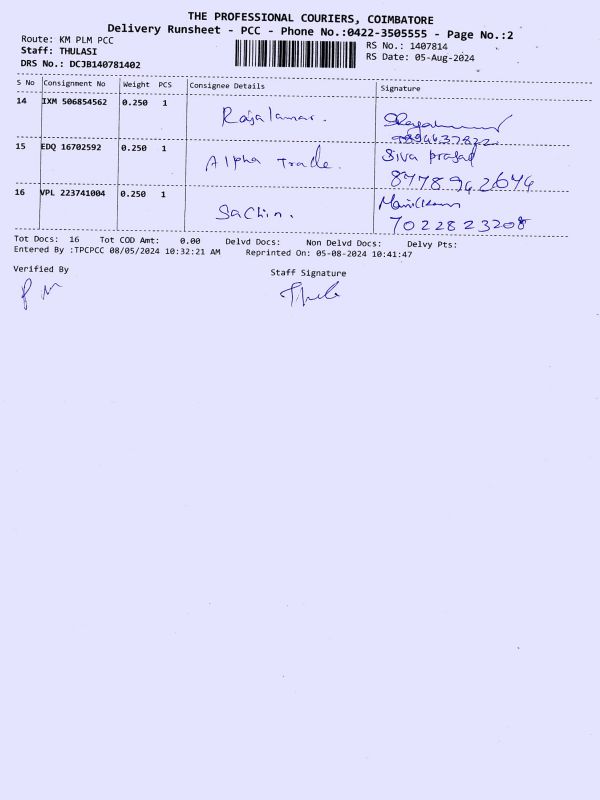 THE PROFESSIONAL COURIERS, COIMBATORE
Delivery Runsheet - PCC - Phone No.:0422-3505555 - Page No.:2
Route: KM PLM PCC
RS No.: 1407814
Staff: THULASI
RS Date: 05-Aug-2024
DRS No.: DCJB140781402
S No Consignment No Weight PCS Consignee Details Signature
14 IXM 506854562 0.250 1
15 EDQ 16702592 0.250 1 Alpha Trade. Siva prasad
8778942644
16 VPL 223741004 0.250 1 Sachin.
7022823208
Tot Docs: 16 Tot COD Amt: 0.00 Delvd Docs: Non Delvd Docs: Delvy Pts:
Entered By :TPCPCC 08/05/2024 10:32:21 AM Reprinted On: 05-08-2024 10:41:47
Verified By
Staff Signature